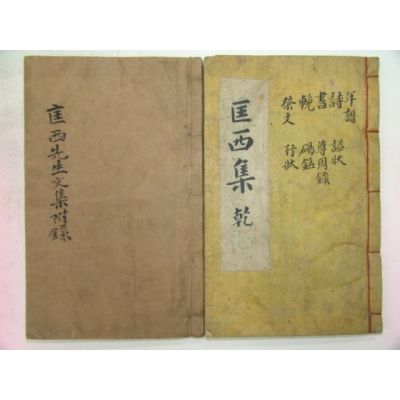 匡西先生文集附錄
匡西集 乾
年譜 諡狀
詩 尊周錄
書 碣銘
輓 行狀
祭文